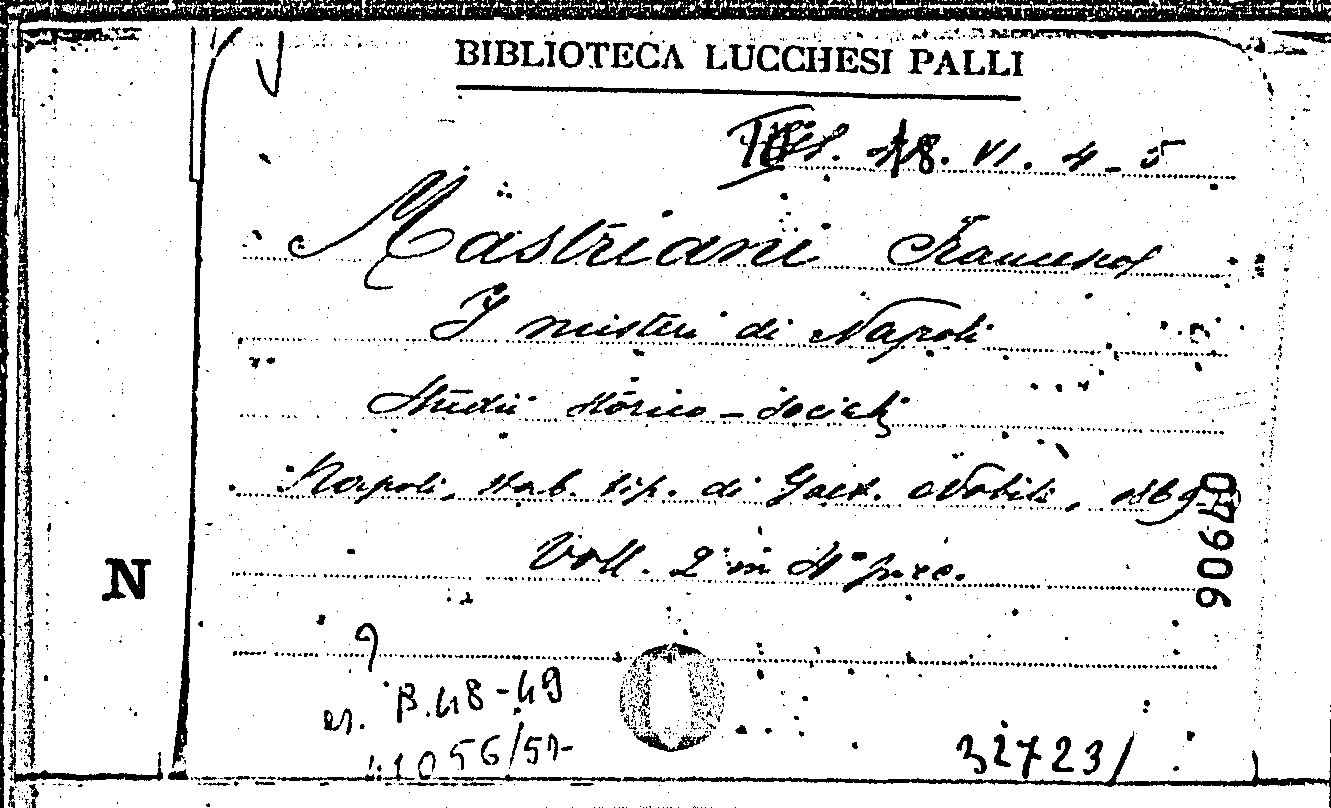 BIBLIOTECA LUCCHESI PALLI
18. VI. 4-5
Mastriani Francesco
I misteri di Napoli
Studii storico-sociali
Napoli, Stab. tip. di Gaet. Nobile, 1869-
Voll. 2 in 4° picc.
N
90640
B.48-49
32723/